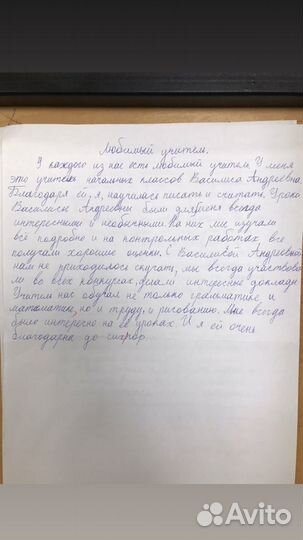 Любимый учитель.
У каждого из нас есть любимый учитель. У меня
это учитель начальных классов Василиса Андреевна.
Благодаря ей, я, научилась писать и считать. Уроки
Василисы Андреевны были для меня всегда
интересными и необычными. На них мы изучали
всё подробно и на контрольных работах все
получали хорошие оценки. С Василисой Андреевной
нам не приходилось скучать, мы всегда участвова
ли во всех конкурсах, делали интересные доклады.
Учитель нас обучал не только грамматике и
математике, но и труду, и рисованию. Мне всегда
было интересно на её уроках. И я ей очень
благодарна до сих пор.
Avito